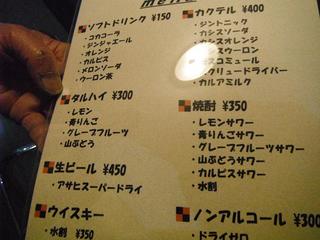 menu
ソフトドリンク ¥150
・コカコーラ
・ジンジャエール
・オレンジ
・カルピス
・メロンソーダ
・ウーロン茶
タルハイ ¥300
・レモン
・青りんご
・グレープフルーツ
・山ぶどう
生ビール ¥450
・アサヒスーパードライ
ウイスキー
・水割 ¥350
カクテル ¥400
・ジントニック
・カシスソーダ
・カシスオレンジ
ウーロン
スコミュール
クリュードライバー
・カルアミルク
焼酎 ¥350
・レモンサワー
・青りんごサワー
・グレープフルーツサワー
・山ぶどうサワー
・カルピスサワー
・水割
ノンアルコール ¥300
・ドライゼロ